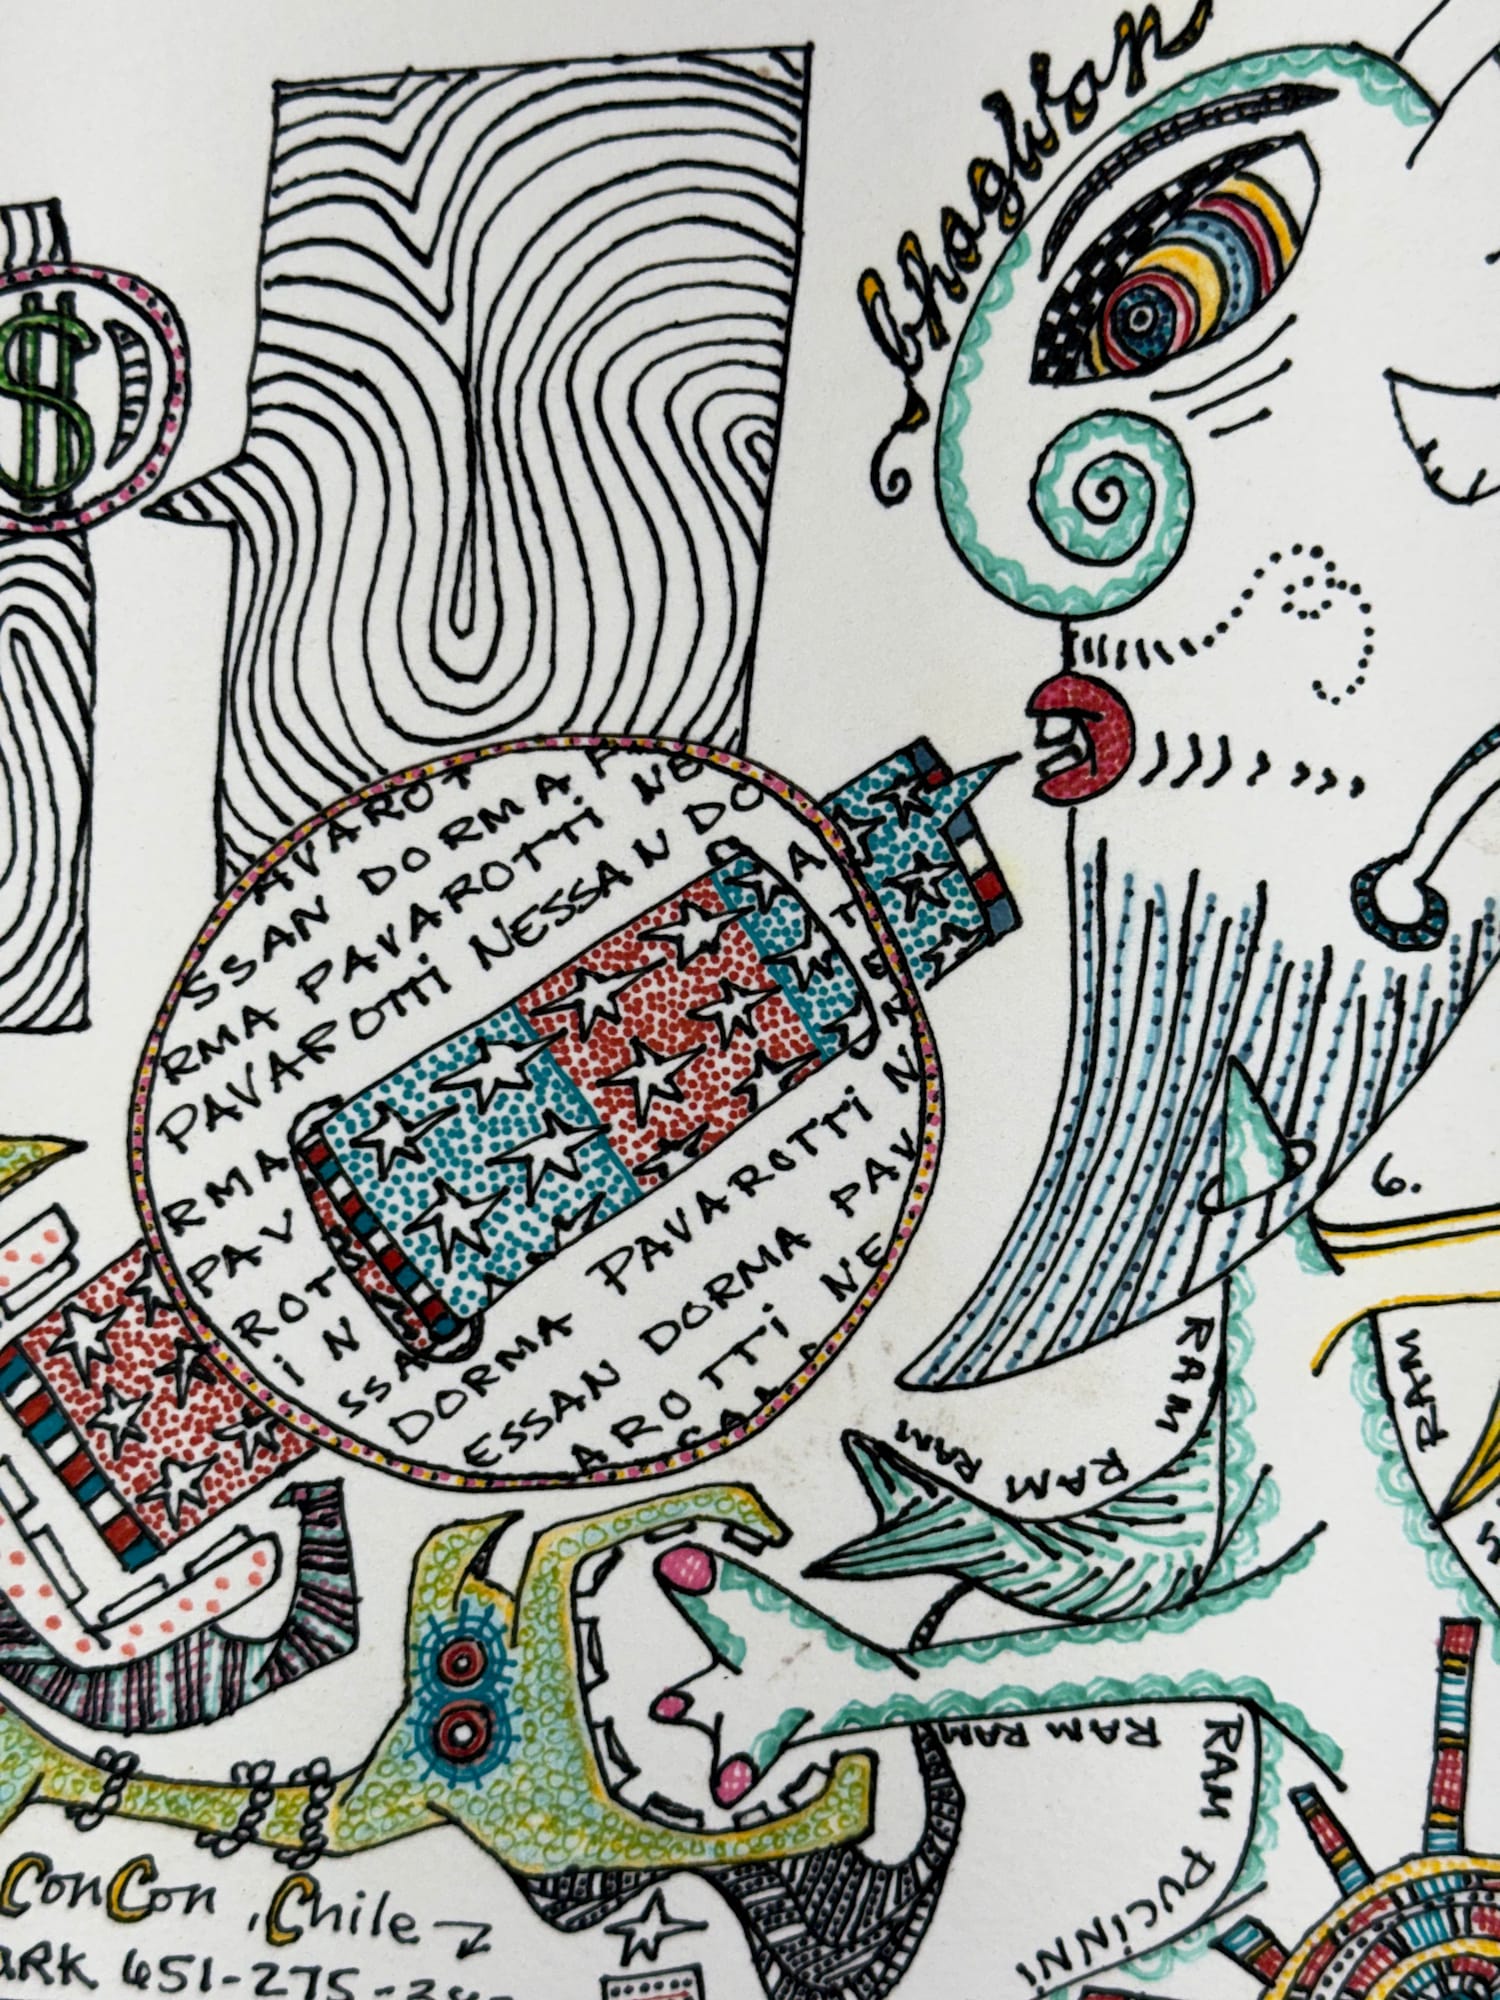 bhagwan
$
AVAROT
SSAN DORMA P
RMA PAVAROTTi NE
PAVAROTTi NESSAN DO
RMA
A
T
E
N
PAV
ROT
i N
SSA
DORMA PAVAROTTi N
ESSAN DORMA PAV
AROTTi NE
SSAN
6.
RAM
RAM
RAM
RAM
RAM
RAM
RAM
RAM RAM
RAM
RAM
PUCiNNi
ConCon, Chile →
ARK 651-275-34